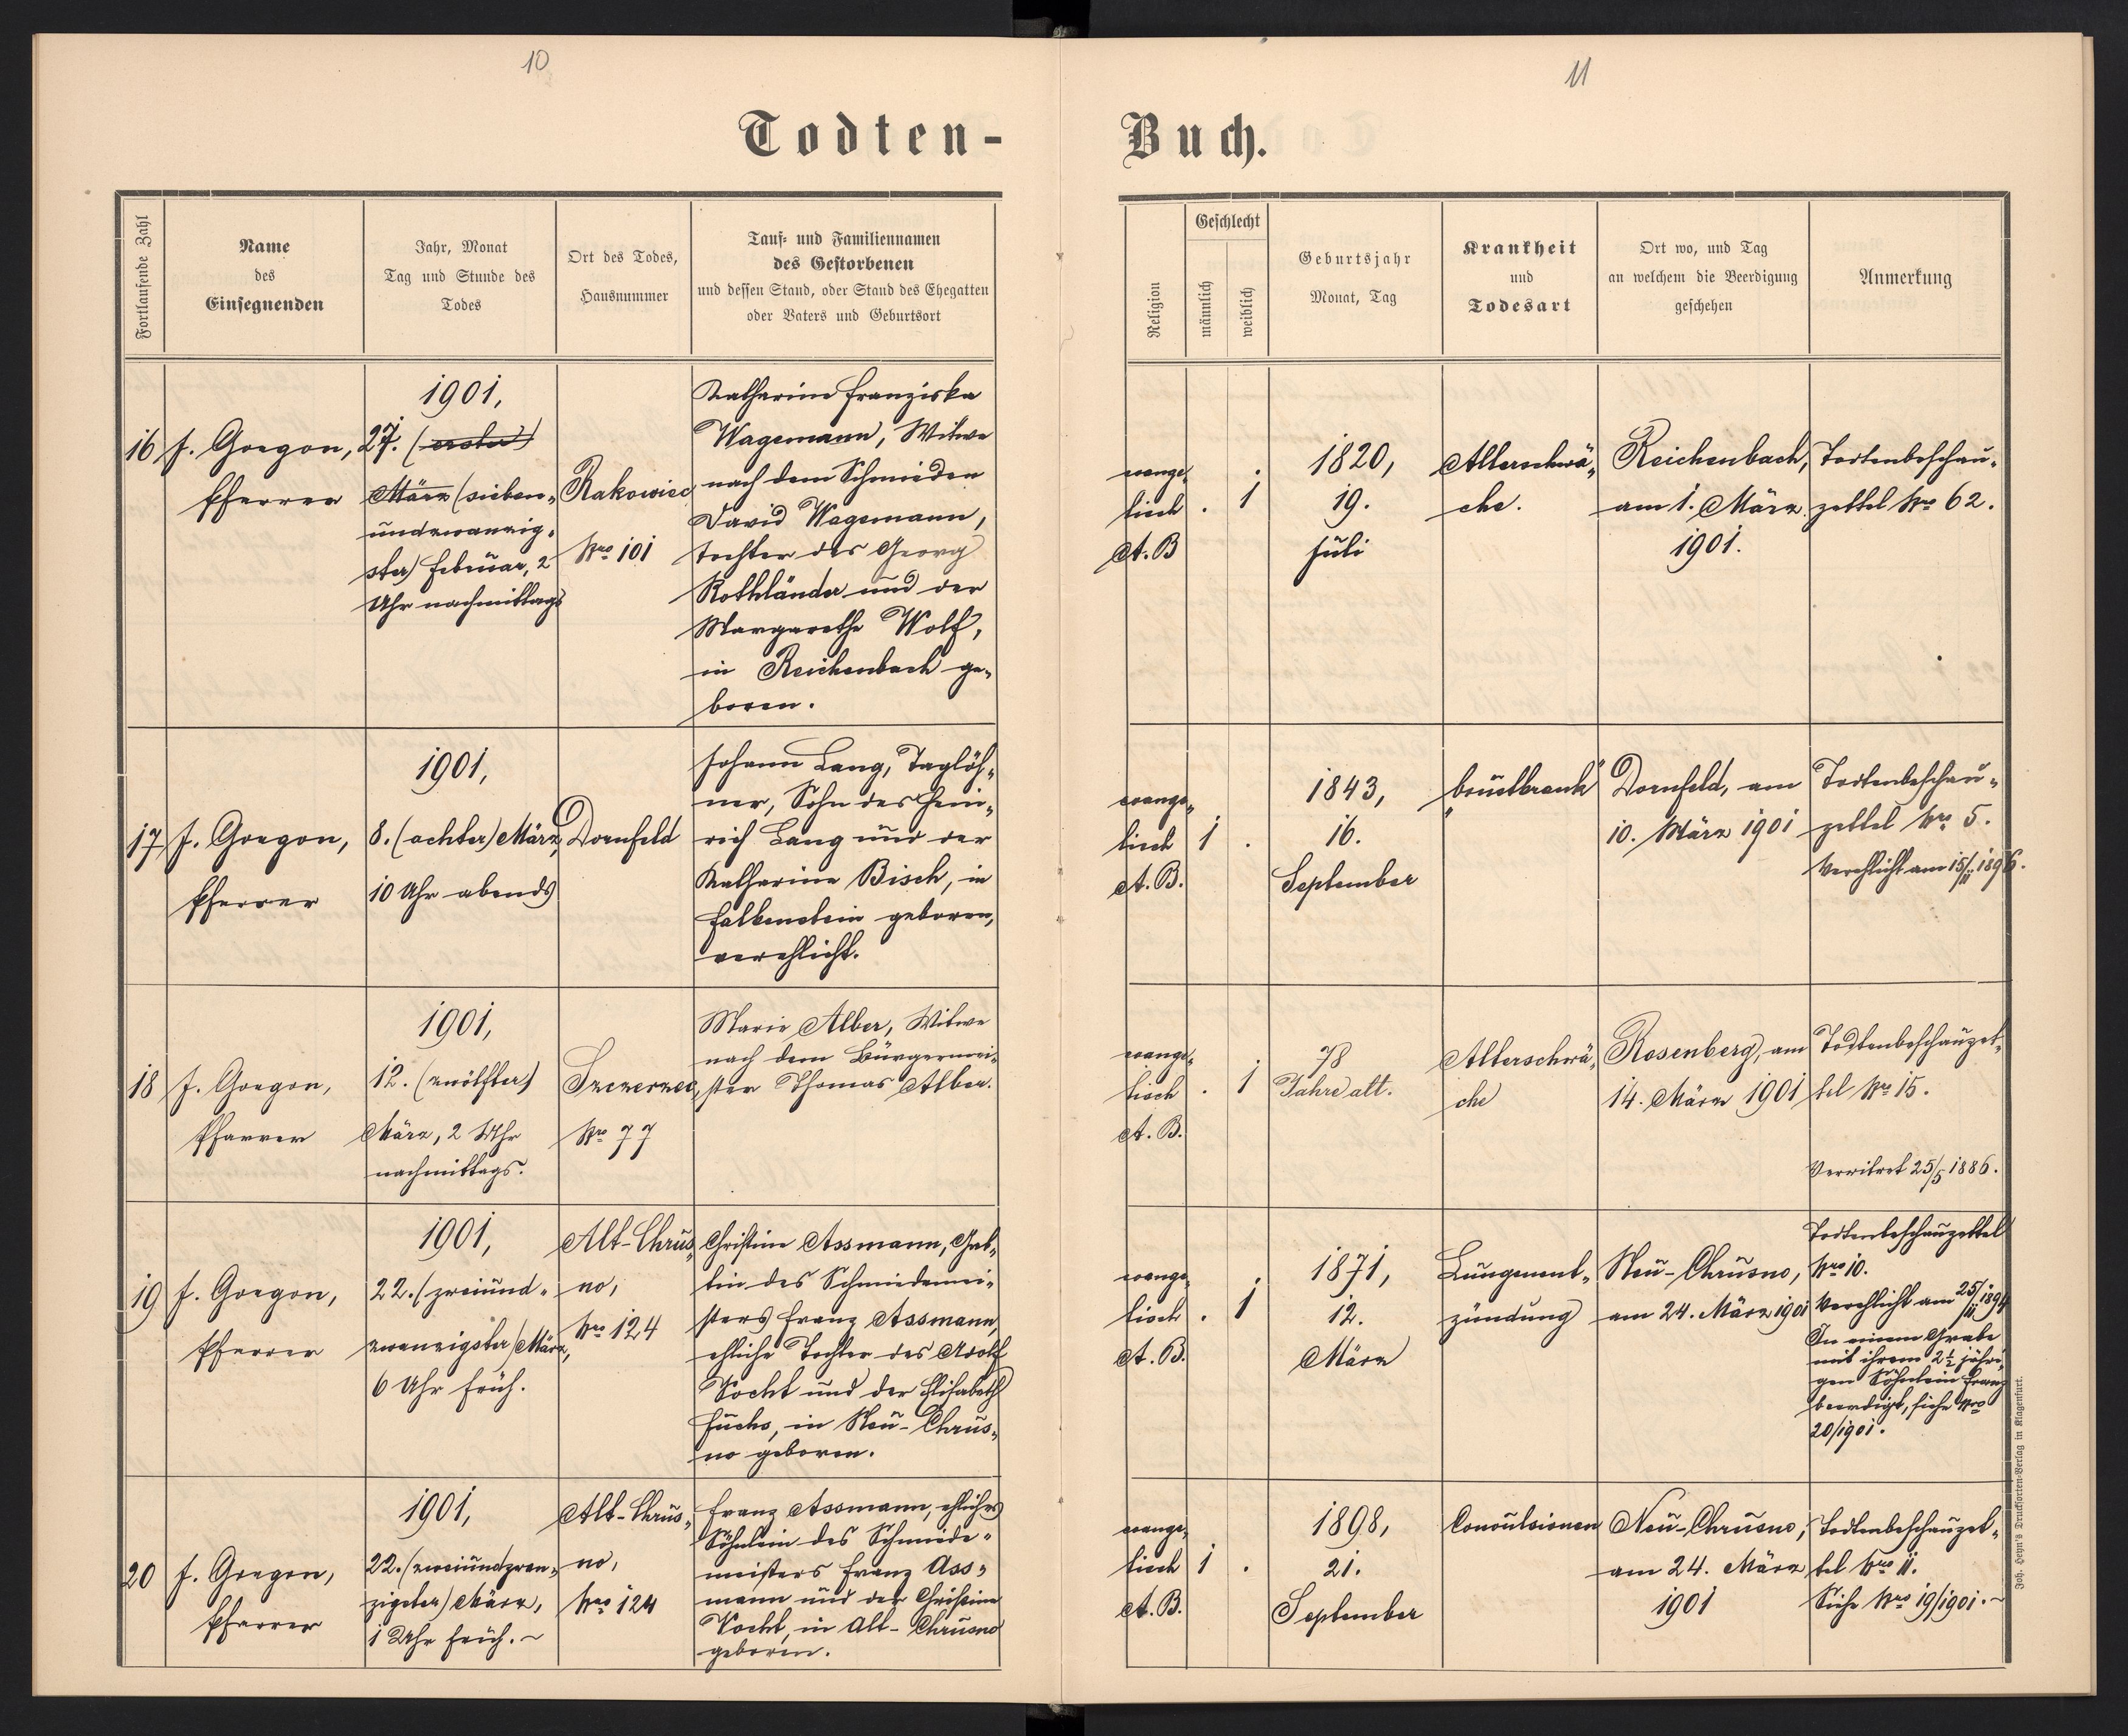 10
11
Todten-
Buch.
Fortlaufende Zahl
Name
des
Einsegnenden
Jahr, Monat
Tag und Stunde des
Todes
Ort des Todes,
Hausnummer
Tauf- und Familiennamen
des Gestorbenen
und dessen Stand, oder Stand des Ehegatten
oder Vaters und Geburtsort
Religion
Geschlecht
männlich
weiblich
Geburtsjahr
Monat, Tag
Krankheit
und
Todesart
Ort wo, und Tag
an welchem die Beerdigung
geschehen
Anmerkung
16
J. Gorgon,
Pfarrer
1901,
27. (erster)
März (sieben-
undzwanzig-
ster) Februar, 2
Uhr nachmittags
Rakowiec
Nro 101
Katharine Franziska
Wagemann, Witwe
nach dem Schmieden
David Wagemann,
Tochter des Georg
Rothländer und der
Margarethe Wolf,
in Reichenbach ge-
boren.
evange-
lisch
A. B
.
1
1820,
19.
Juli
Altersschwä-
che.
Reichenbach,
am 1. März
1901.
Todtenbeschau-
zettel Nro 62.
17
J. Gorgon,
Pfarrer
1901,
8. (achter) März,
10 Uhr abends
Dornfeld
Johann Lang, Taglöh-
ner, Sohn des Hein-
rich Lang und der
Katharine Bisch, in
Falkenstein geboren,
verehlicht.
evange-
lisch
A. B.
1
.
1843,
16.
September
brustkrank
Dornfeld, am
10. März 1901
Todtenbeschau-
zettel Nro 5.
Verehlicht am 15/11 1896.
18
J. Gorgon,
Pfarrer
1901,
12. (zwölfter)
März, 2 Uhr
nachmittags.
Szczerzec,
Nro 77
Marie Alber, Witwe
nach dem Bürgermei-
ster Thomas Alber.
evange-
lisch
A. B.
.
1
78
Jahre alt.
Altersschwä-
che
Rosenberg, am
14. März 1901
Todtenbeschauzet-
tel Nro 15.
Verwitwet 25/5 1886.
19
J. Gorgon,
Pfarrer
1901,
22. (zweiund-
zwanzigster) März,
6 Uhr früh.
Alt-Chrus-
no,
Nro 124
Christine Assmann, Gat-
tin des Schmiedemei-
sters Franz Assmann,
ehliche Tochter des Adolf
Vocht und der Elisabeth
Fuchs, in Neu-Chrus-
no geboren.
evange-
lisch
A. B.
.
1
1871,
12.
März
Lungenent-
zündung
Neu-Chrusno,
am 24. März 1901
Todtenbeschauzettel
Nro 10.
Verehlicht am 25/11 1894
In einem Grabe
mit ihrem 2½ jähri-
gen Söhnlein Franz
beerdigt, siehe Nro
20/1901.
20
J. Gorgon,
Pfarrer
1901,
22. (zweiundzwan-
zigster) März,
1 Uhr früh. ~
Alt-Chrus-
no,
Nro 124
Franz Assmann, ehliches
Söhnlein des Schmiede-
meisters Franz Ass-
mann und der Christine
Vocht, in Alt-Chrusno
geboren.
evange-
lisch
A. B.
1
.
1898,
21.
September
Convulsionen
Neu-Chrusno,
am 24. März
1901
Todtenbeschauzet-
tel Nro 11.
Siehe Nro 19/1901. ~
Joh. Heyn's Drucksorten-Verlag in Klagenfurt.